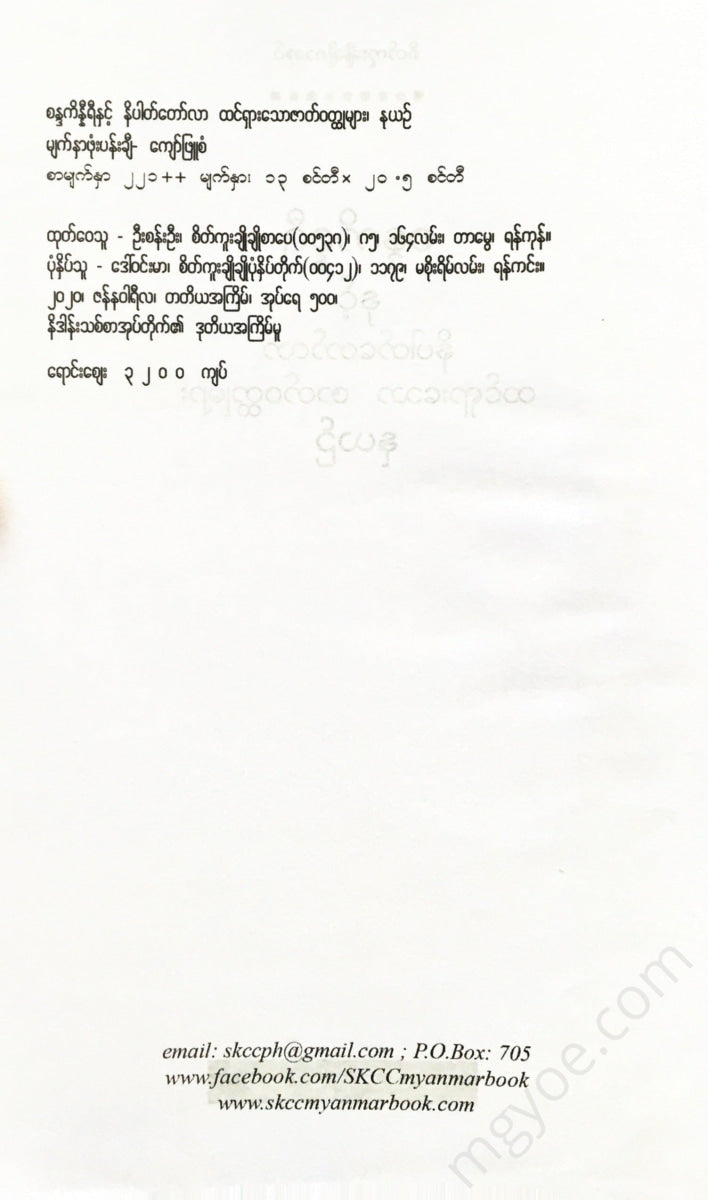 စန္ဒကိန္နရီနှင့် နိပါတ်တော်လာ ထင်ရှားသောဇာတ်ဝတ္ထုများ၊ နယဉ်
မျက်နှာဖုံးပန်းချီ- ကျော်ဖြူစံ
စာမျက်နှာ ၂၂၁++ မျက်နှာ၊ ၁၃ စင်တီ× ၂၀ .၅ စင်တီ
ထုတ်ဝေသူ - ဦးစန်းဦး၊ စိတ်ကူးချိုချိုစာပေ(၀၀၅၃၈)၊ ဂ၅၊ ၁၆၄လမ်း၊ တာမွေ၊ ရန်ကုန်။
ပုံနှိပ်သူ - ဒေါ်ဝင်းမာ၊ စိတ်ကူးချိုချိုပုံနှိပ်တိုက်(၀၀၄၁၂)၊ ၁၁၇၉၊ မစိုးရိမ်လမ်း၊ ရန်ကင်း။
၂၀၂၀၊ ဇန်နဝါရီလ၊ တတိယအကြိမ်၊ အုပ်ရေ ၅၀၀၊
နိဒါန်းသစ်စာအုပ်တိုက်၏ ဒုတိယအကြိမ်မူ
ရောင်းဈေး ၃ ၂ ၀ ၀ ကျပ်
email: skccph@gmail.com ; P.O.Box: 705
www.facebook.com/SKCCmyanmarbook
www.skccmyanmarbook.com
mgyoe.com